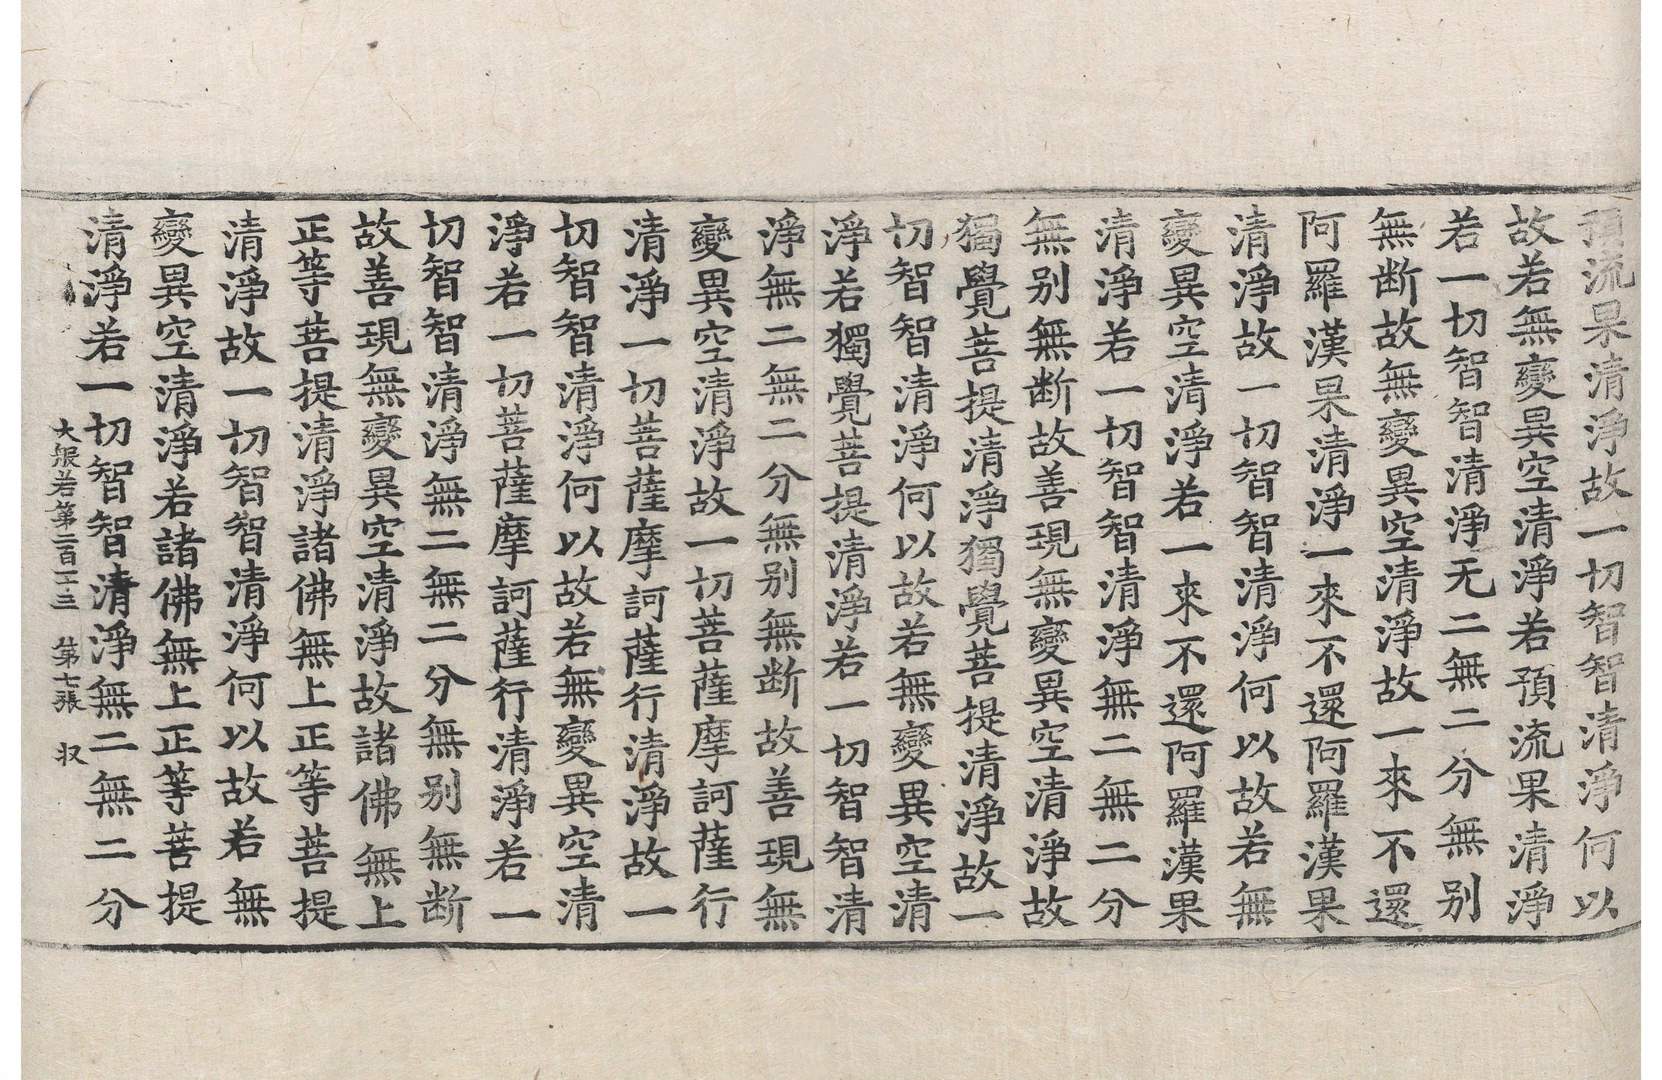 預流果清淨故一切智智清淨何以
故若無變異空清淨若預流果清淨
若一切智智清淨无二無二分無別
無断故無變異空清淨故一來不還
阿羅漢果清淨一來不還阿羅漢果
清淨故一切智智清淨何以故若無
變異空清淨若一來不還阿羅漢果
清淨若一切智智清淨無二無二分
無別無断故善現無變異空清淨故
獨覺菩提清淨獨覺菩提清淨故一
切智智清淨何以故若無變異空清
淨若獨覺菩提清淨若一切智智清
淨無二無二分無別無断故善現無
變異空清淨故一切菩薩摩訶薩行
清淨一切菩薩摩訶薩行清淨故一
切智智清淨何以故若無變異空清
淨若一切菩薩摩訶薩行清淨若一
切智智清淨無二無二分無別無断
故善現無變異空清淨故諸佛無上
正等菩提清淨諸佛無上正等菩提
清淨故一切智智清淨何以故若無
變異空清淨若諸佛無上正等菩提
清淨若一切智智清淨無二無二分
大般若第二百二十三 第七張 収